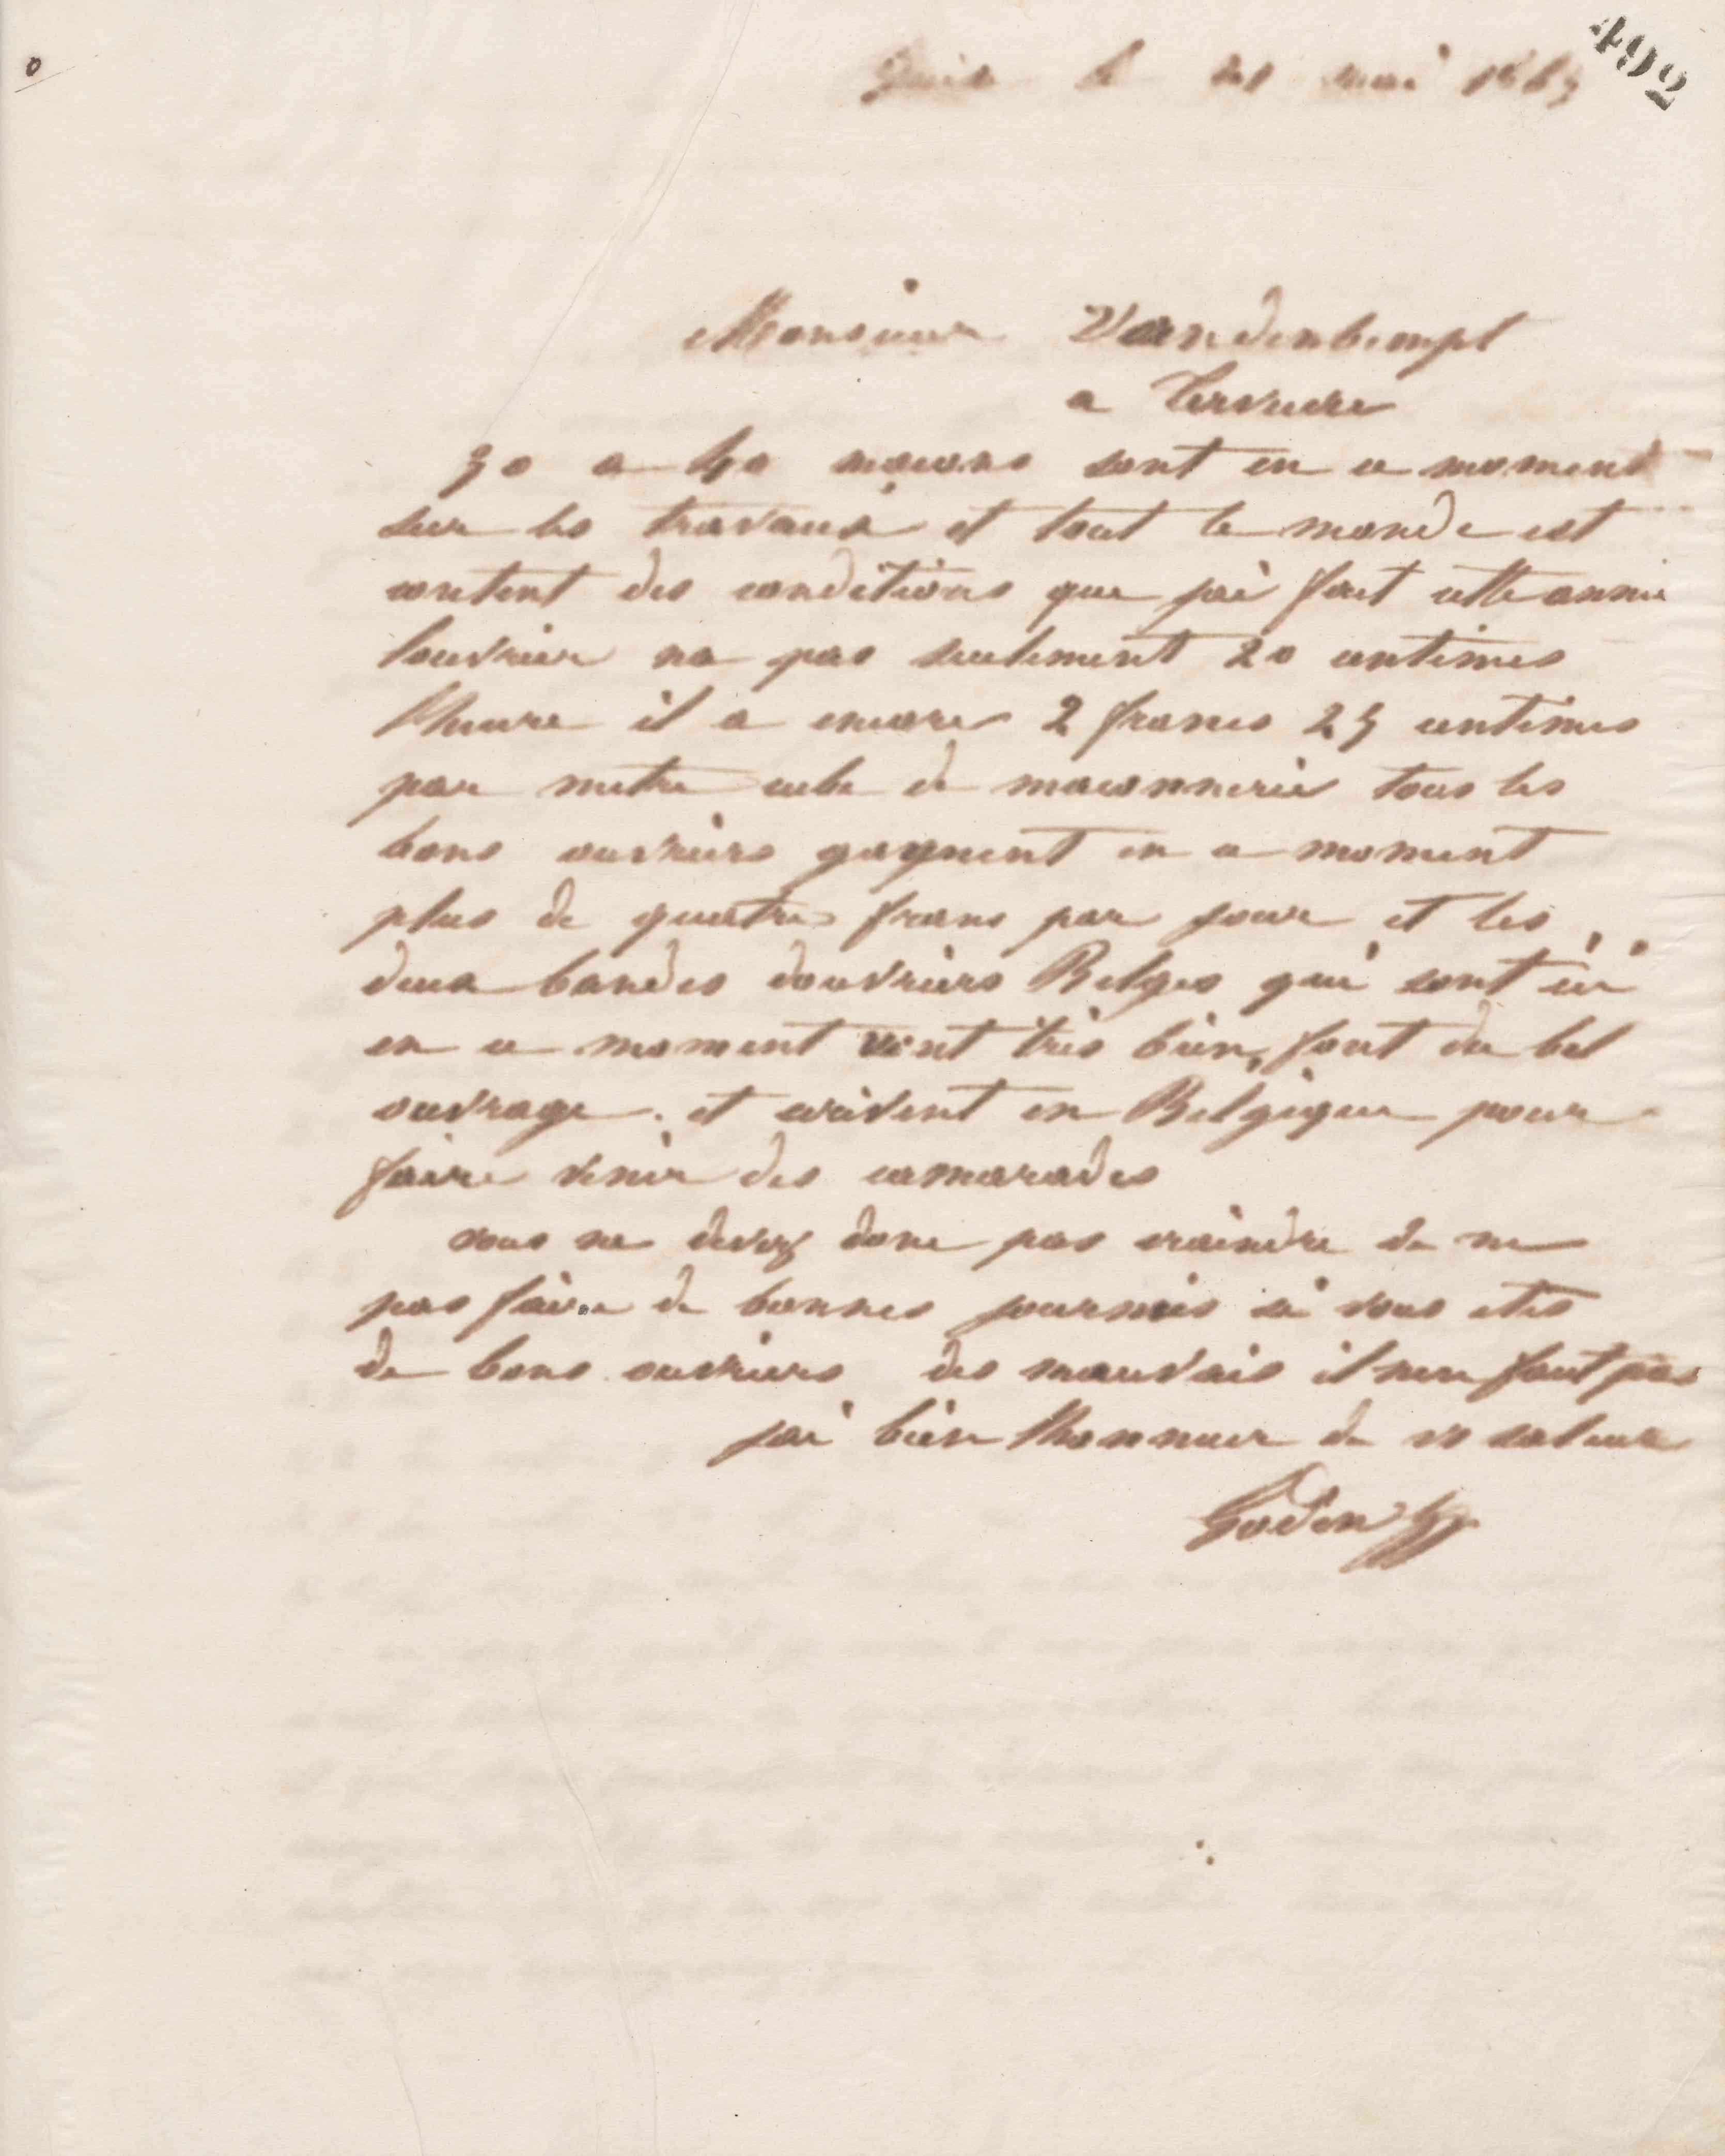 492
0
Guise le 21 mai 1865
Monsieur Vandenbempt
a Tervuere
30 a 40 macons sont en ce moment
sur les travaux et tout le monde est
content des conditions que jai fait cette année
louvrier na pas seulement 20 centimes
lheure il a encore 2 francs 25 centimes
par metre cube de maconnerie tous les
bons ouvriers gagnent en ce moment
plus de quatre francs par jour et les
deux bandes douvriers Belges qui sont ici
en ce moment vont très bien, font du bel
ouvrage. et ecrivent en Belgique pour
faire venir des camarades
vous ne devez donc pas craindre de ne
pas faire de bonnes journées si vous etes
de bons ouvriers des mauvais il nen faut pas
jai bien lhonneur de vs saluer
Godin